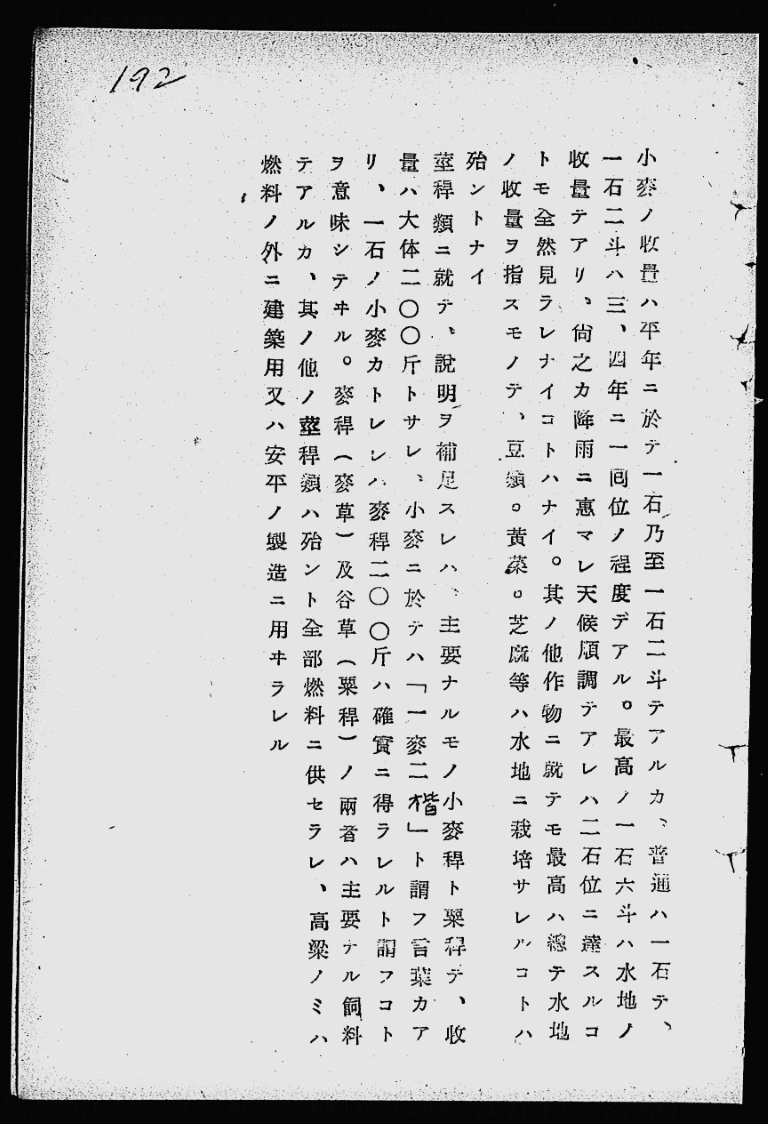 192
小麥ノ收量ハ平年ニ於テ一石乃至一石二斗テアルカ、普通ハ一石テ、
一石二斗ハ三、四年ニ一囘位ノ程度デアル。最高ノ一石六斗ハ水地ノ
收量テアリ、尙之カ降雨ニ惠マレ天候順調テアレハ二石位ニ達スルコ
トモ全然見ラレナイコトハナイ。其ノ他作物ニ就テモ最高ハ總テ水地
ノ收量ヲ指スモノテ、豆類。黃菜。芝麻等ハ水地ニ栽培サレルコトハ
殆ントナイ
莖稈類ニ就テ、說明ヲ補足スレハ、主要ナルモノ小麥稈ト粟稈テ、收
量ハ大体二〇〇斤トサレ、小麥ニ於テハ「一麥二楷」ト謂フ言葉カア
リ、一石ノ小麥カトレレハ麥稈二〇〇斤ハ確實ニ得ラレルト謂フコト
ヲ意味シテヰル。麥稈(麥草)及谷草(粟稈)ノ兩者ハ主要ナル飼料
テアルカ、其ノ他ノ莖稈類ハ殆ント全部燃料ニ供セラレ、高粱ノミハ
燃料ノ外ニ建築用又ハ安平ノ製造ニ用ヰラレル